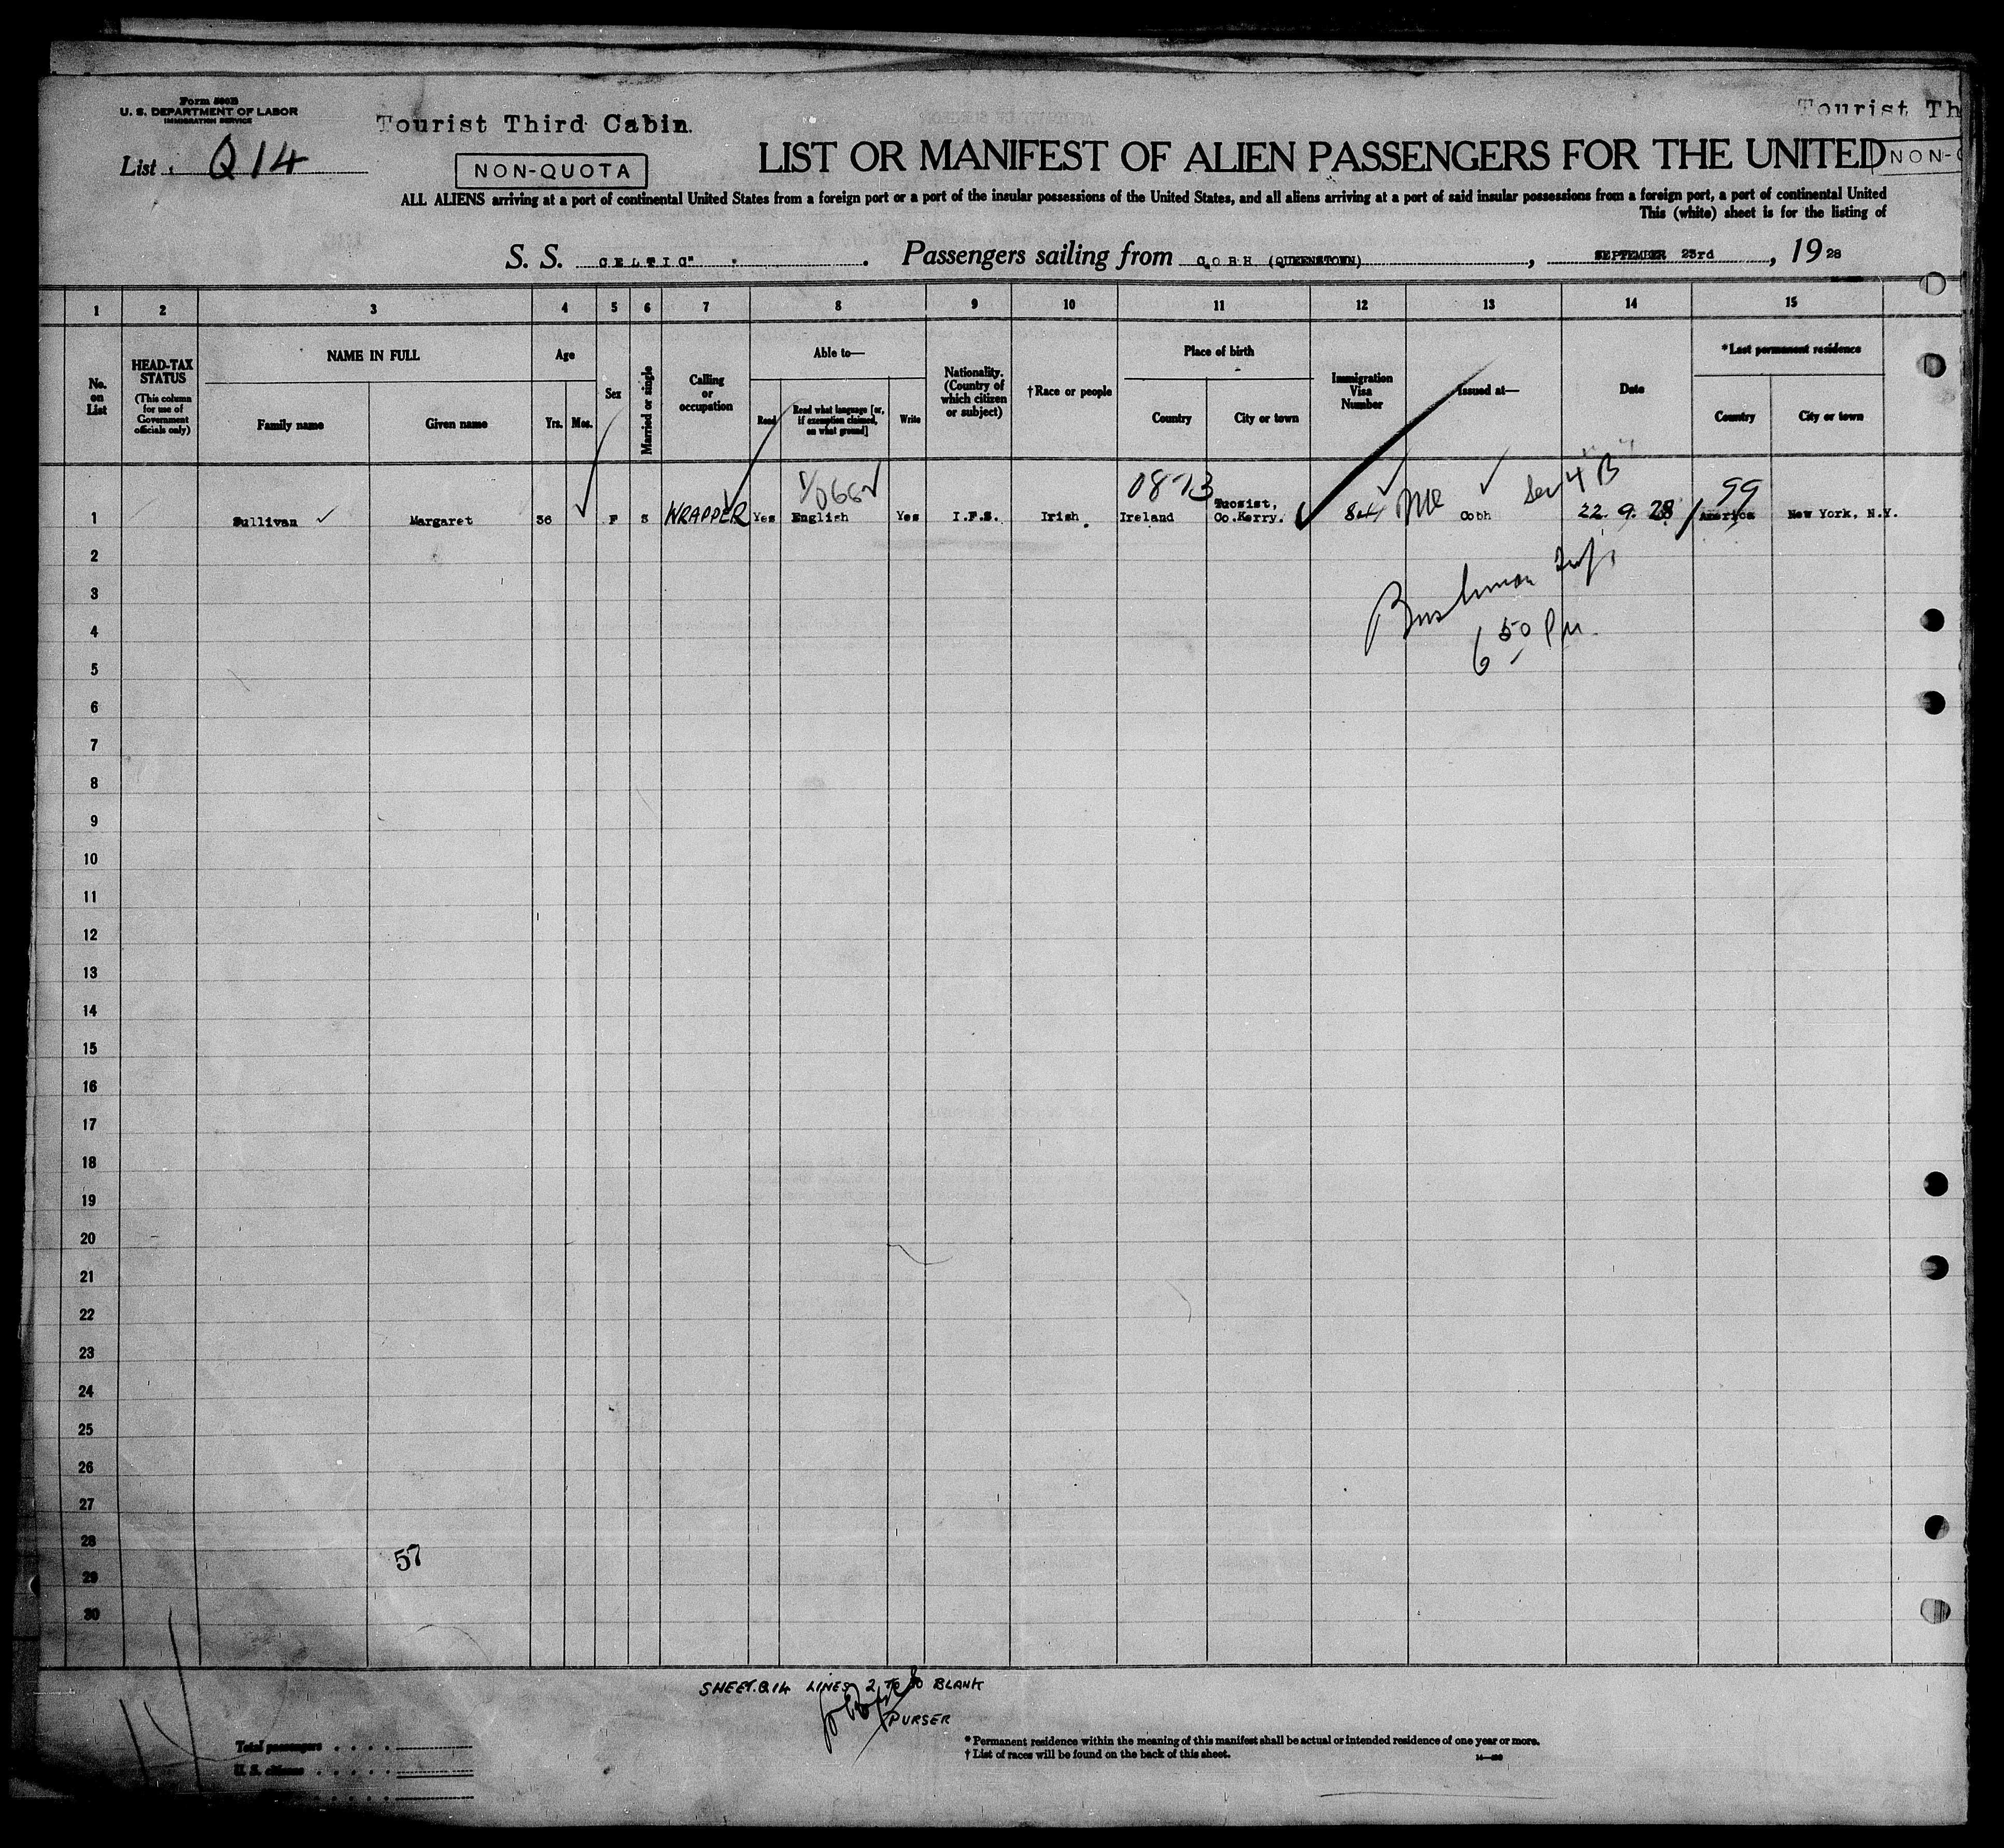 Form 500B
U. S. DEPARTMENT OF LABOR
IMMIGRATION SERVICE
List Q14
Tourist Third Cabin.
NON-QUOTA
Tourist Th
NON-
LIST OR MANIFEST OF ALIEN PASSENGERS FOR THE UNITED
ALL ALIENS arriving at a port of continental United States from a foreign port or a port of the insular possessions of the United States, and all aliens arriving at a port of said insular possessions from a foreign port, a port of continental United
This (white) sheet is for the listing of
S. S. CELTIC" . Passengers sailing from COBH (QUEENSTOWN) , SEPTEMBER 23rd , 19 28
1 2 3 4 5 6 7 8 9 10 11 12 13 14 15
No. on List
HEAD-TAX STATUS
(This column for use of Government officials only)
NAME IN FULL
Family name
Given name
Age
Yrs. Mos.
Sex
Married or single
Calling or occupation
Able to—
Read
Read what language [or, if exemption claimed, on what ground]
Write
Nationality. (Country of which citizen or subject)
†Race or people
Place of birth
Country
City or town
Immigration Visa Number
Issued at—
Date
*Last permanent residence
Country
City or town
0873
99
1 Sullivan Margaret 36 F S WRAPPER Yes English Yes I.F.S. Irish. Ireland Tuosist, Co.Kerry. 84 Cobh 22. 9. 28 America New York, N.Y.
2
3
6 50 PM.
4
5
6
7
8
9
10
11
12
13
14
15
16
17
18
19
20
21
22
23
24
25
26
27
28
57
29
30
SHEET.Q14 LINES 2 TO 30 BLANK
PURSER
Total passengers
U. S. citizens
* Permanent residence within the meaning of this manifest shall be actual or intended residence of one year or more.
† List of races will be found on the back of this sheet.